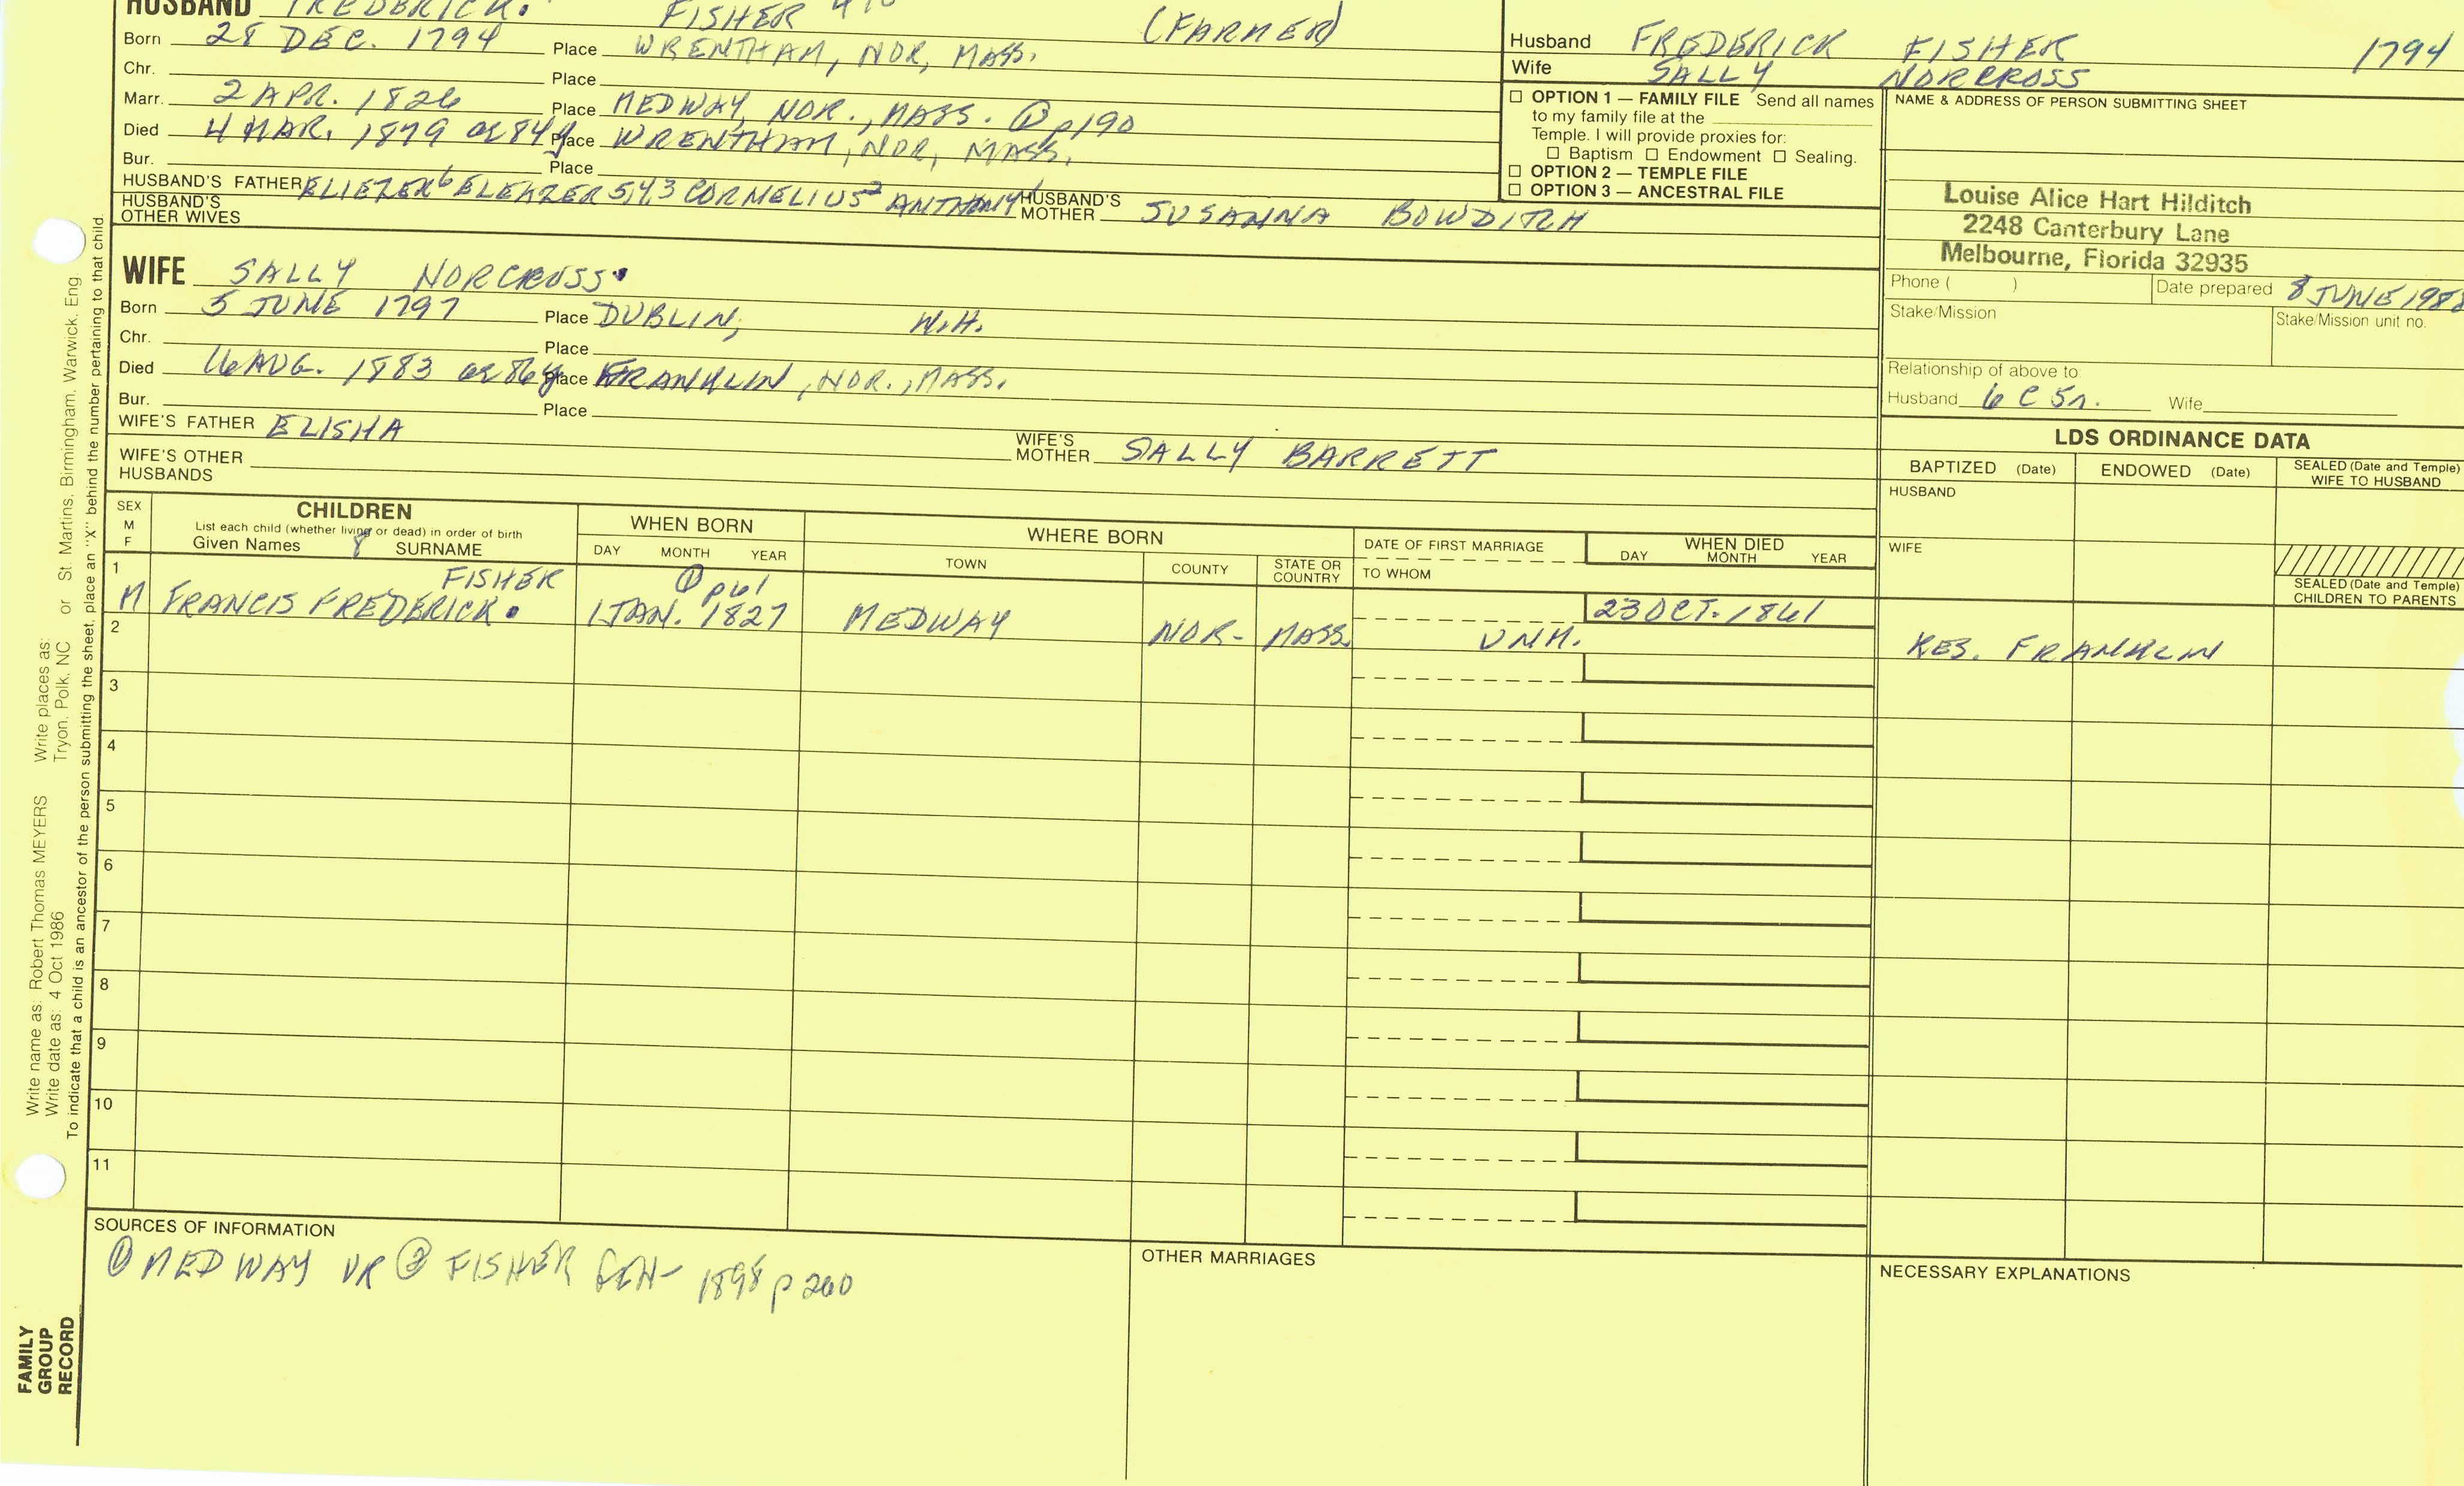 HUSBAND FREDERICK. FISHER (FARMER)
Born 28 DEC. 1794 Place WRENTHAM, NOR, MASS.
Chr. Place
Marr. 2 APR. 1826 Place MEDWAY, NOR., MASS. ① p190
Died 4 MAR. 1879 ae 84y Place WRENTHAM, NOR, MASS.
Bur. Place
HUSBAND'S FATHER ELIEZER⁶ ELEAZER 5,4,3 CORNELIUS² ANTHONY¹ HUSBAND'S MOTHER SUSANNA BOWDITCH
HUSBAND'S OTHER WIVES
WIFE SALLY NORCROSS.
Born 5 JUNE 1797 Place DUBLIN, N.H.
Chr. Place
Died 16 AUG. 1883 ae 86y Place FRANKLIN, NOR., MASS.
Bur. Place
WIFE'S FATHER ELISHA WIFE'S MOTHER SALLY BARRETT
WIFE'S OTHER HUSBANDS
Husband FREDERICK FISHER 1794
Wife SALLY NORCROSS
☐ OPTION 1 — FAMILY FILE Send all names
to my family file at the
Temple. I will provide proxies for:
☐ Baptism ☐ Endowment ☐ Sealing.
☐ OPTION 2 — TEMPLE FILE
☐ OPTION 3 — ANCESTRAL FILE
NAME & ADDRESS OF PERSON SUBMITTING SHEET
Louise Alice Hart Hilditch
2248 Canterbury Lane
Melbourne, Florida 32935
Phone ( ) Date prepared 8 JUNE 1988
Stake/Mission Stake/Mission unit no.
Relationship of above to:
Husband 6 C 5r. Wife
LDS ORDINANCE DATA
BAPTIZED (Date) ENDOWED (Date) SEALED (Date and Temple) WIFE TO HUSBAND
HUSBAND
WIFE
SEALED (Date and Temple)
CHILDREN TO PARENTS
SEX M F CHILDREN WHEN BORN WHERE BORN DATE OF FIRST MARRIAGE WHEN DIED
List each child (whether living or dead) in order of birth
Given Names 8 SURNAME DAY MONTH YEAR TOWN COUNTY STATE OR COUNTRY TO WHOM DAY MONTH YEAR
1 FISHER ① p61
M FRANCIS FREDERICK. 1 JAN. 1827 MEDWAY NOR- MASS. UNM. 23 OCT. 1861 RES. FRANKLIN
2
3
4
5
6
7
8
9
10
11
SOURCES OF INFORMATION
① MEDWAY VR ② FISHER GEN- 1898 p 260
OTHER MARRIAGES
NECESSARY EXPLANATIONS
Write name as: Robert Thomas MEYERS Write places as:
Write date as: 4 Oct 1986 Tryon, Polk, NC or St. Martins, Birmingham, Warwick, Eng
To indicate that a child is an ancestor of the person submitting the sheet, place an "X" behind the number pertaining to that child.
FAMILY
GROUP
RECORD